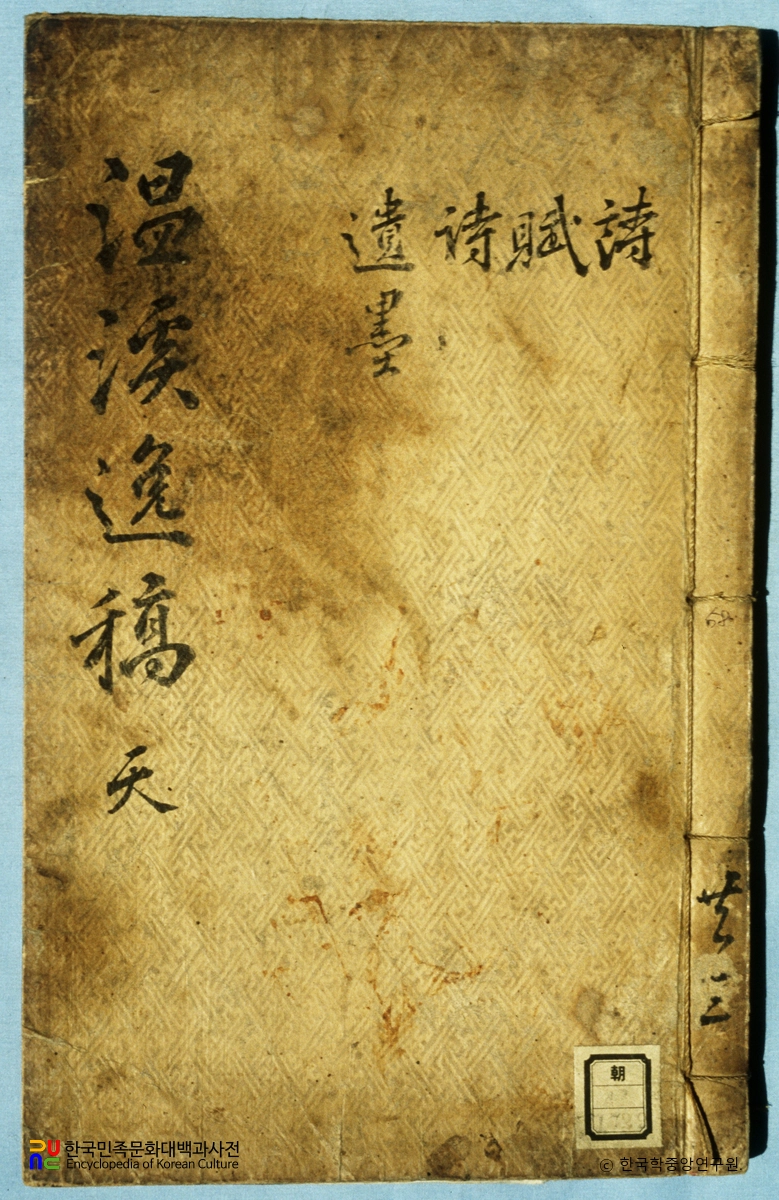 詩
賦
詩
遺墨
温溪逸稿 天
共三
朝
한국민족문화대백과사전
Encyclopedia of Korean Culture
© 한국학중앙연구원